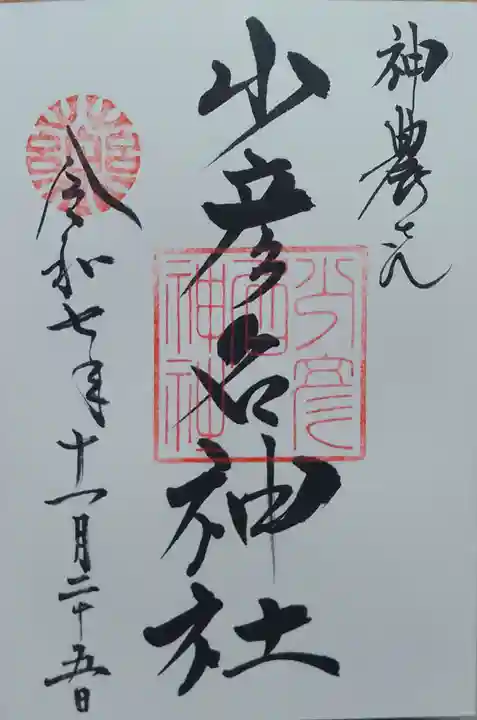 神農さん
少彦名神社
少彦
名
神社
令和七年十一月二十五日